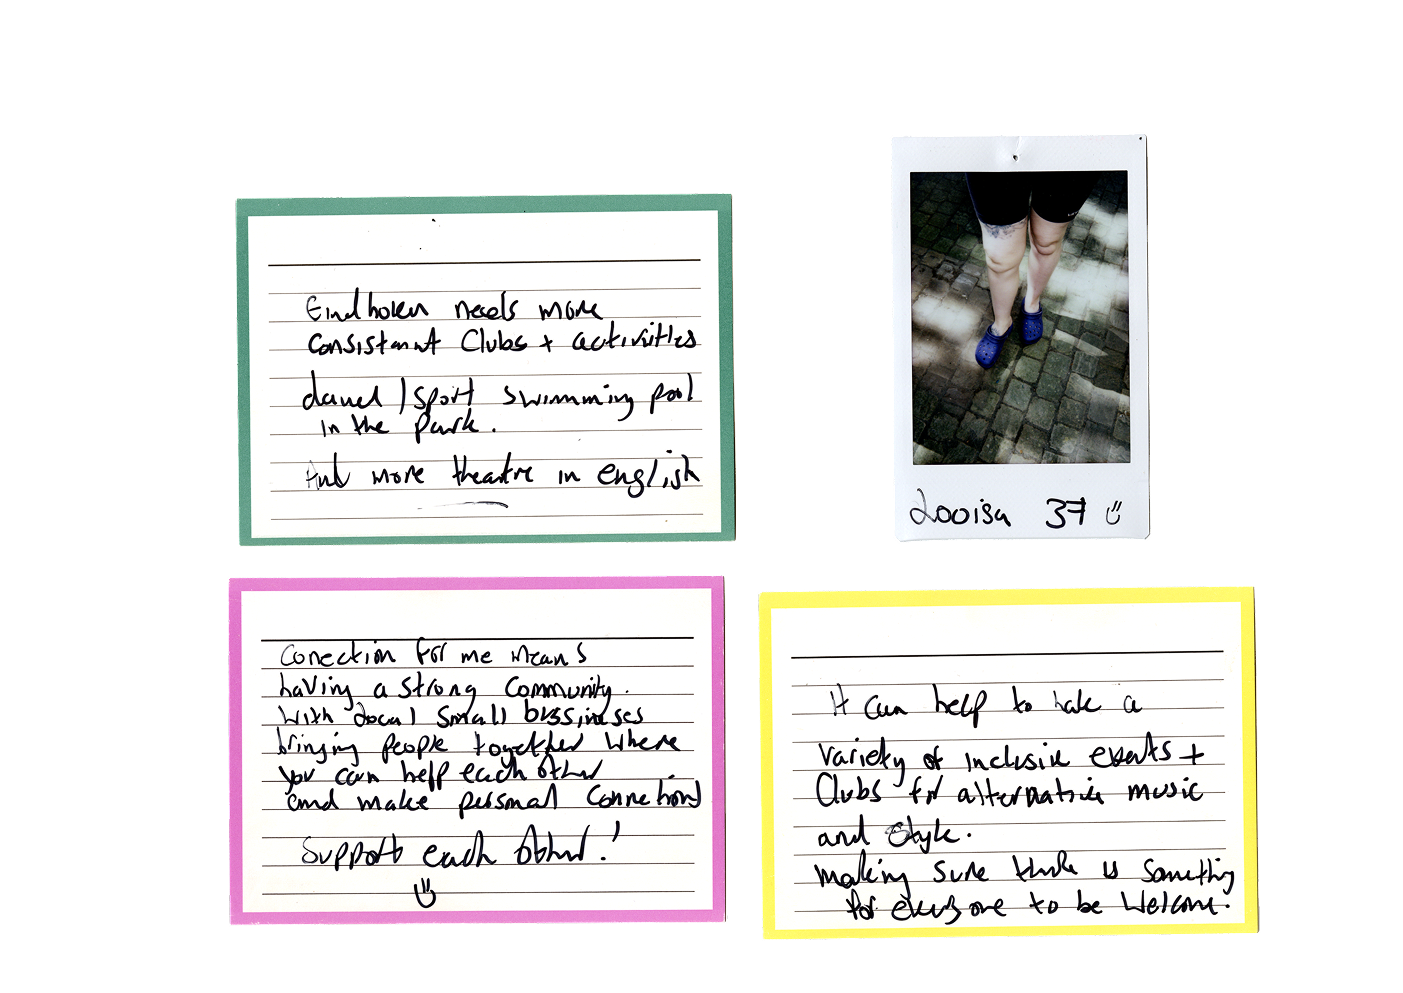 Eindhoven needs more
consistant Clubs + activities
/ sport swimming pool
in the park.
And more theatre in english
Louisa 37
Conection for me means
having a strong Community.
With Local small bussineses
bringing people together where
you can help each other
and make personal Connections
Support each other!
It can help to have a
variety of inclusive events +
Clubs for alternative music
and Style.
making sure there is something
for everyone to be Welcome.